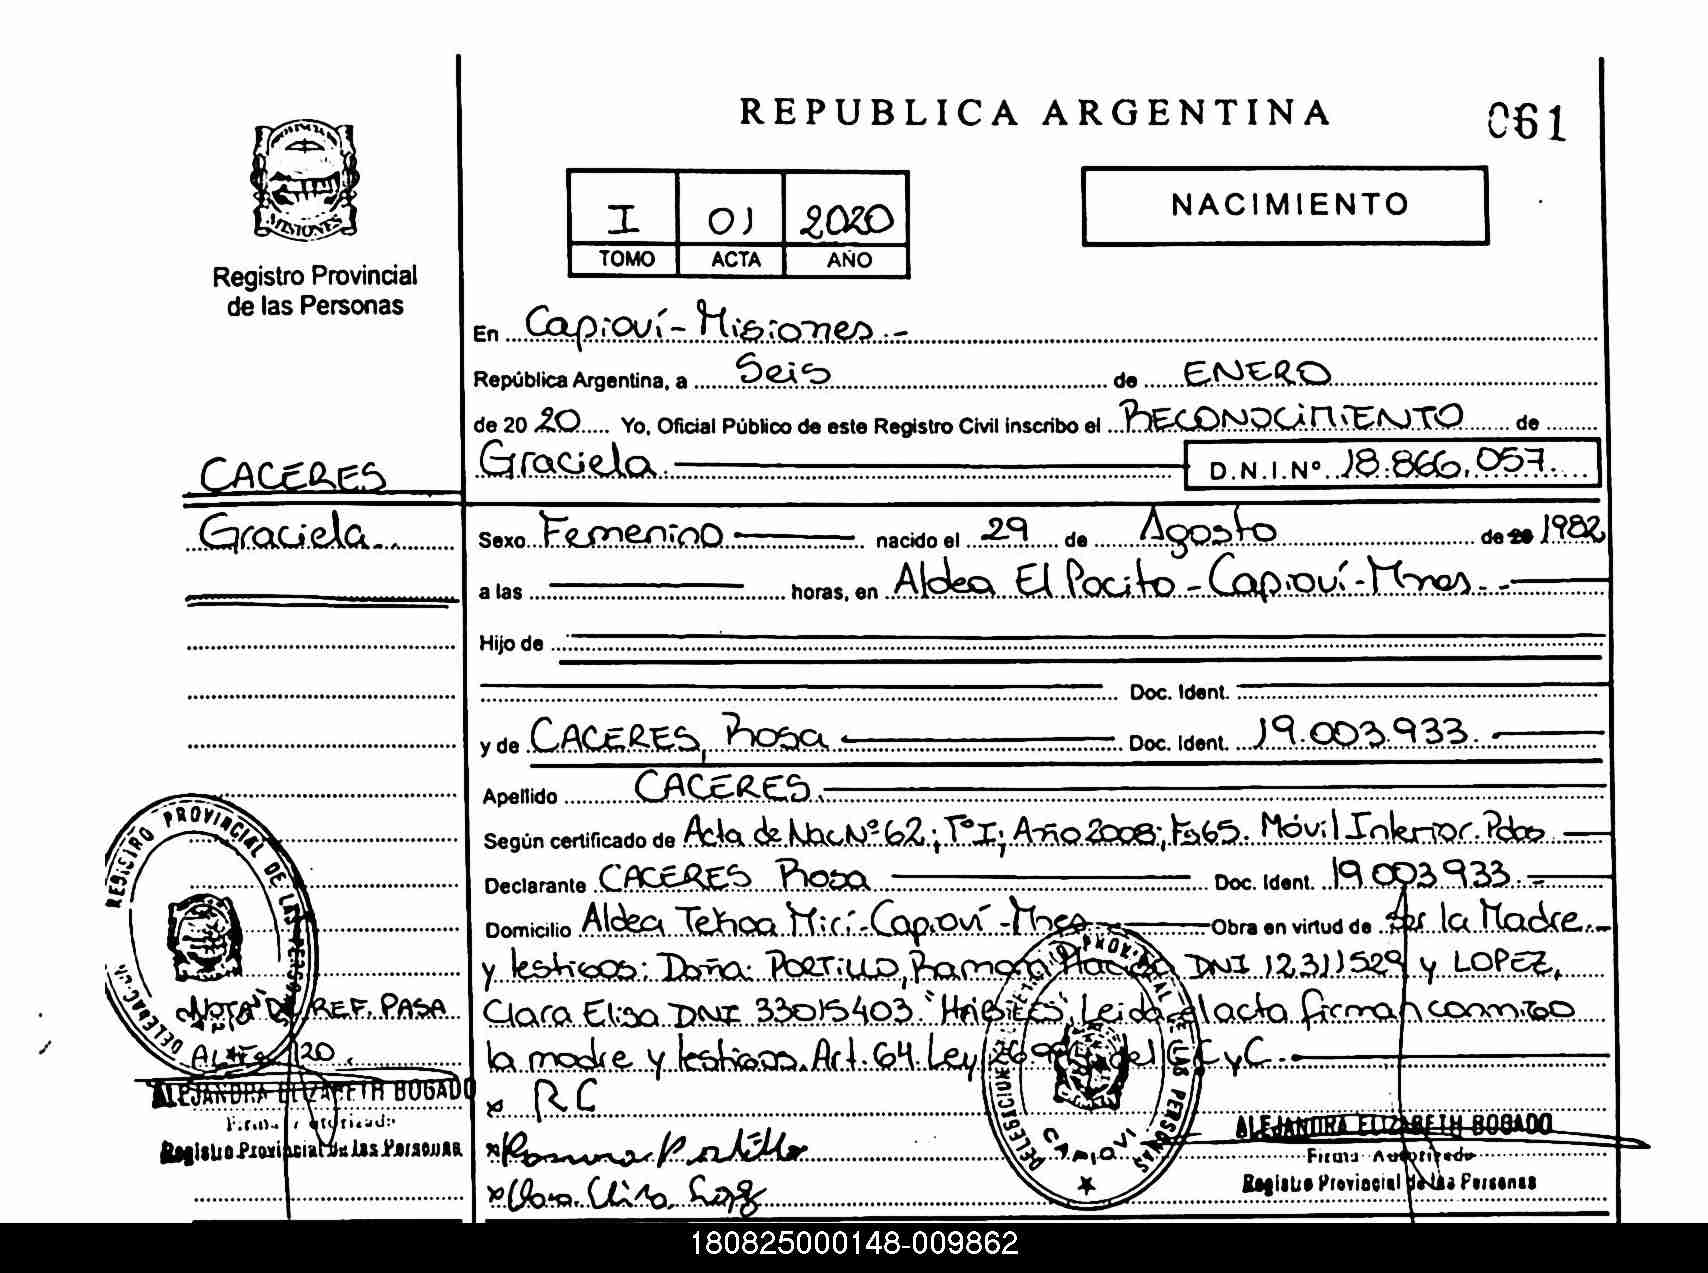 REPUBLICA ARGENTINA
061
MISIONES
Registro Provincial
de las Personas
I 01 2020
TOMO ACTA AÑO
NACIMIENTO
En Capioví - Misiones.-
República Argentina, a Seis de ENERO
de 20 20 Yo, Oficial Público de este Registro Civil inscribo el RECONOCIMIENTO de
Graciela D.N.I.Nº 18.866.057.
CACERES
Graciela
Sexo Femenino nacido el 29 de Agosto de 20 1982
a las horas, en Aldea El Pocito - Capioví - Mnes.-
Hijo de
Doc. Ident.
y de CACERES, Rosa Doc. Ident. 19.003.933.
Apellido CACERES.
Según certificado de Acta de Nac Nº 62; Tº I; Año 2008; Fº 65. Móvil Interior. Pdas
Declarante CACERES Rosa Doc. Ident. 19.003.933.-
Domicilio Aldea Tekoa Mirí - Capioví - Mnes Obra en virtud de Ser la Madre.-
y testigos: Doña: PORTILLO, Ramona DNI 12.311529 y LOPEZ,
Clara Elisa DNI 33015403. "HABILES", Leida el acta firman conmigo
la madre y testigos. Art. 64. Ley del C C y C.
x RC
x Ramona Portillo
x Clara Elisa Lopez
NOTA DE REF. PASA
REGISTRO PROVINCIAL DE LAS PERSONAS
ALEJANDRA ELIZABETH BOGADO
Firma Autorizada
Registro Provincial de las Personas
DELEGACION CAPIOVI
ALEJANDRA ELIZABETH BOGADO
Firma Autorizada
Registro Provincial de las Personas
180825000148-009862